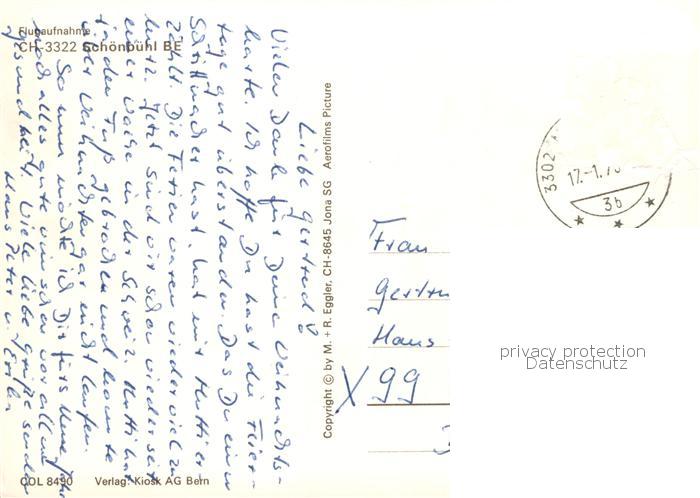 Flugaufnahme
CH-3322 Schönbühl BE
Liebe Gertrud!
Vielen Dank für Deine Weihnachts-
karte. Ich hoffe Du hast die Feier-
tage gut überstanden. Das Du einen
hast, hat mir Mutti er-
zählt. Die Ferien waren wieder viel zu
kurz. Jetzt sind wir schon wieder seit
einer Woche in der Schweiz. Mutti hat
den Fuß gebrochen und konnte
über Weihnachten gar nicht laufen.
So nun möchte ich Dir fürs Neue Jahr
noch alles gute wünschen vor allem
Gesundheit. Viele liebe Grüße senden
Hans Peter u.
COL 8490 Verlag: Kiosk AG Bern
Copyright © by M. + R. Eggler, CH-8645 Jona SG Aerofilms Picture
3302
17.-1.7
3b
Frau
Gertru
Hans
X 99
privacy protection
Datenschutz